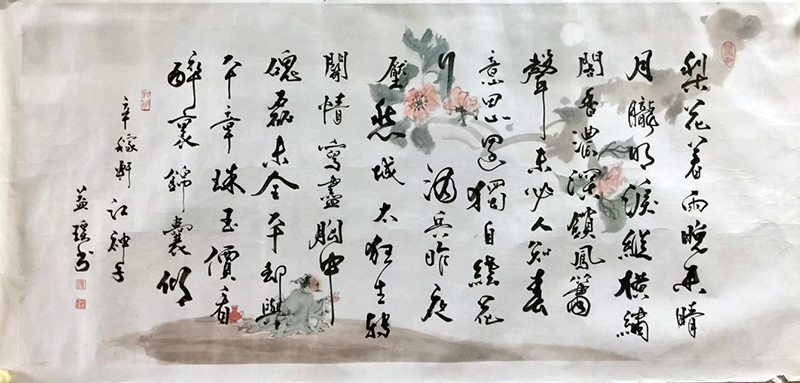 梨花着雨晚来晴
月朧明淚縱橫繡
閣香濃深鎖鳳簫
聲未必人知春
意思還獨自繞花
行 酒兵昨夜
壓愁城太狂生轉
關情寫盡胸中
磈磊未全平却與
平章珠玉價看
醉裏錦囊傾
辛稼軒 江神子
益瑶书